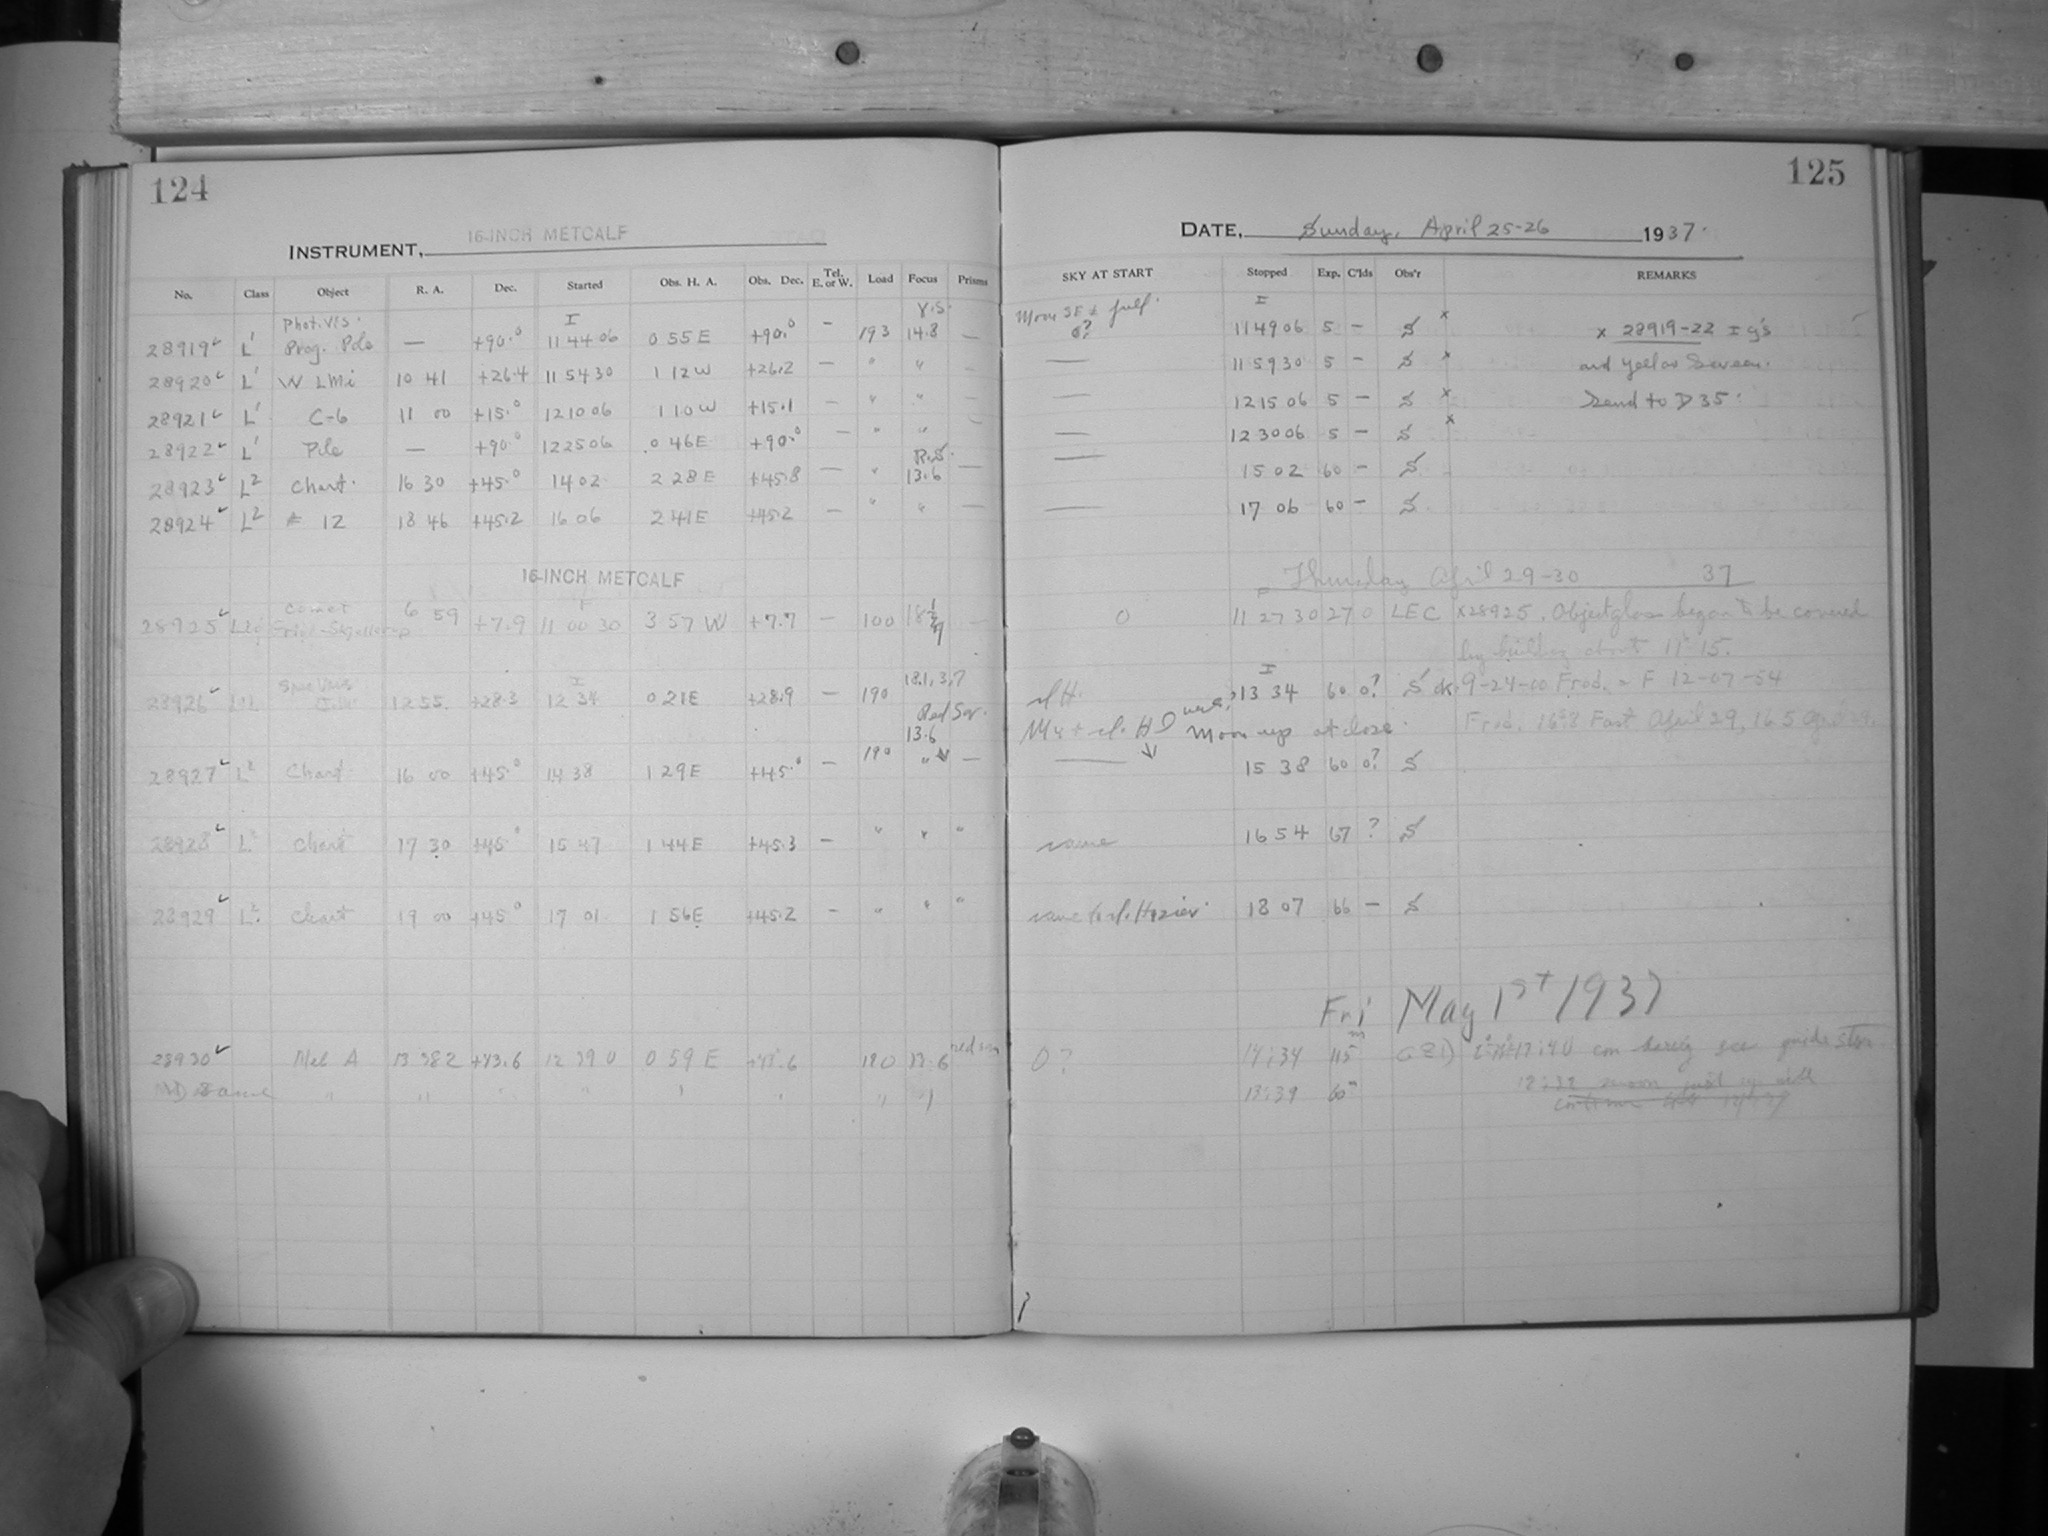 124
INSTRUMENT, 16-INCH METCALF
No. Class Object R. A. Dec. Started Obs. H. A. Obs. Dec. Tel. E. or W. Load Focus Prisms
Phot. Vis. I Y.S.
28919 L1 Prog. Pole — +90.0 11 44 06 0 55 E +90.0 — 193 14.8 —
28920 L1 W LMi 10 41 +26.4 11 54 30 1 12 W +26.2 — " " —
28921 L1 C-6 11 00 +15.0 12 10 06 1 10 W +15.1 — " " —
28922 L1 Pole — +90.0 12 25 06 0 46 E +90.0 — " "
R.S.
28923 L2 Chart. 16 30 +45.0 14 02 2 28 E +45.8 — " 13.6 —
28924 L2 # 12 18 46 +45.2 16 06 2 41 E +45.2 — " " —
16-INCH METCALF
Comet
28925 6 59 +7.9 11 00 30 3 57 W +7.7 — 100 —
I 18.1, 3,7
28926 12 55 +28.3 12 34 0 21 E +28.9 — 190
Red Scr.
13.6
28927 L2 Chart 16 00 +45.0 14 38 1 29 E +45.0 — 190 " —
28928 L2 Chart 17 30 +45 15 47 1 44 E +45.3 — " " "
28929 L2. Chart 19 00 +45.0 17 01 1 56 E +45.2 — " " "
28930 Mel A 13 382 +43.6 12 39 0 0 59 E +43.6 180 13.6 red
Same " " " " " " " "
125
DATE, Sunday, April 25-26 1937.
SKY AT START Stopped Exp. C'lds Obs'r REMARKS
Moon SE full. I
0? 11 49 06 5 — S x x 28919-22 I g's
— 11 59 30 5 — S x and yellow Screen.
— 12 15 06 5 — S x Send to D 35.
— 12 30 06 5 — S x
— 15 02 60 — S
— 17 06 60 — S.
Thursday April 29-30 37
0 11 27 30 27 0 LEC x28925. Objectglass began to be covered
by building about 11h 15.
I
sl H. 13 34 60 0? S ok. 9-24-00 Frod. = F 12-07-54
Moon up at close. Frod. 16s.8 Fast April 29, 16.5
— 15 38 60 0? S
same 16 54 67 ? S
same 18 07 66 — S
Fri May 1st 1937
0? 14:34 115m can barely see guide star
13:39 60m moon just up will
continue